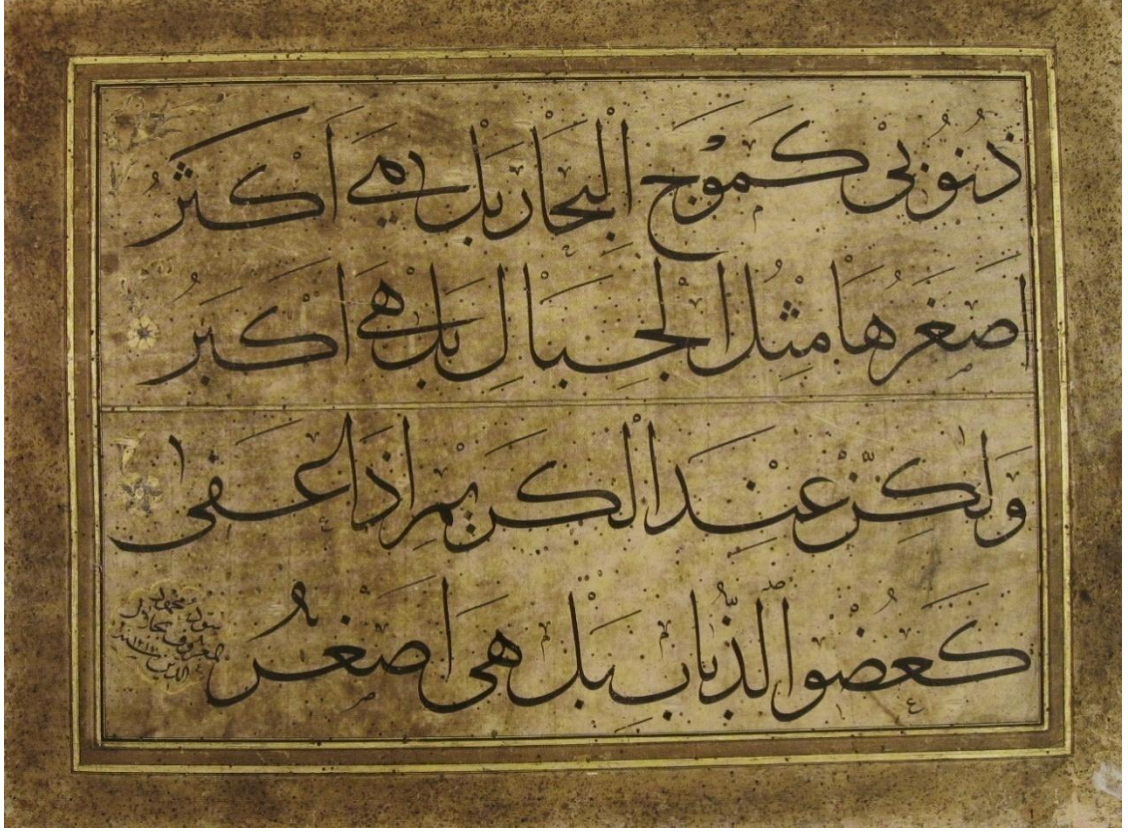 ذُنُوبِي كَمَوْجِ الْبِحَارِ بَلْ هِيَ اَكْثَرُ
اَصْغَرُهَا مِثْلُ الْجِبَالِ بَلْ هِيَ اَكْبَرُ
وَلٰكِنَّ عِنْدَ الْكَرِيْمِ اِذَا عَفٰى
كَعُضْوِ الذُّبَابِ بَلْ هِيَ اَصْغَرُ
محمود
الدين